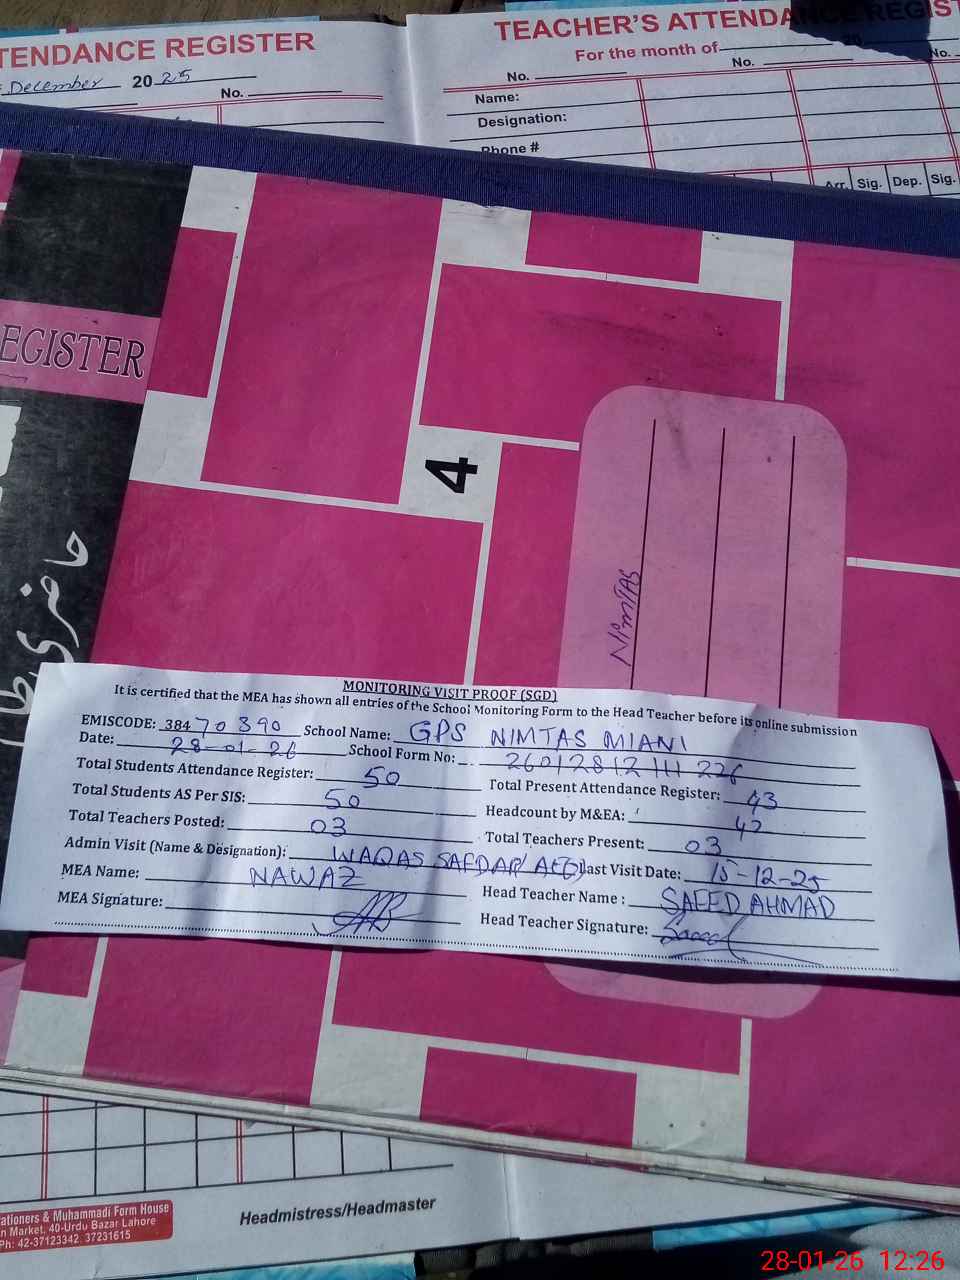 TENDANCE REGISTER
December 2025
No.
TEACHER'S ATTENDANCE REGIST
For the month of 20
No. No. No.
Name:
Designation:
Phone #
Arr. Sig. Dep. Sig.
EGISTER
حاضری طلبا
4
NIMTAS
MONITORING VISIT PROOF (SGD)
It is certified that the MEA has shown all entries of the School Monitoring Form to the Head Teacher before its online submission
EMISCODE: 384 70390 School Name: GPS NIMTAS MIANI
Date: 28-01-26 School Form No:
Total Students Attendance Register: 50 Total Present Attendance Register: 43
Total Students AS Per SIS: 50 Headcount by M&EA: 42
Total Teachers Posted: 03 Total Teachers Present: 03
Admin Visit (Name & Designation): WAQAS SAFDAR Last Visit Date: 15-12-25
MEA Name: NAWAZ Head Teacher Name : SAEED AHMAD
MEA Signature: Head Teacher Signature:
ationers & Muhammadi Form House
n Market, 40-Urdu Bazar Lahore
Ph: 42-37123342, 37231615
Headmistress/Headmaster
28-01-26 12:26